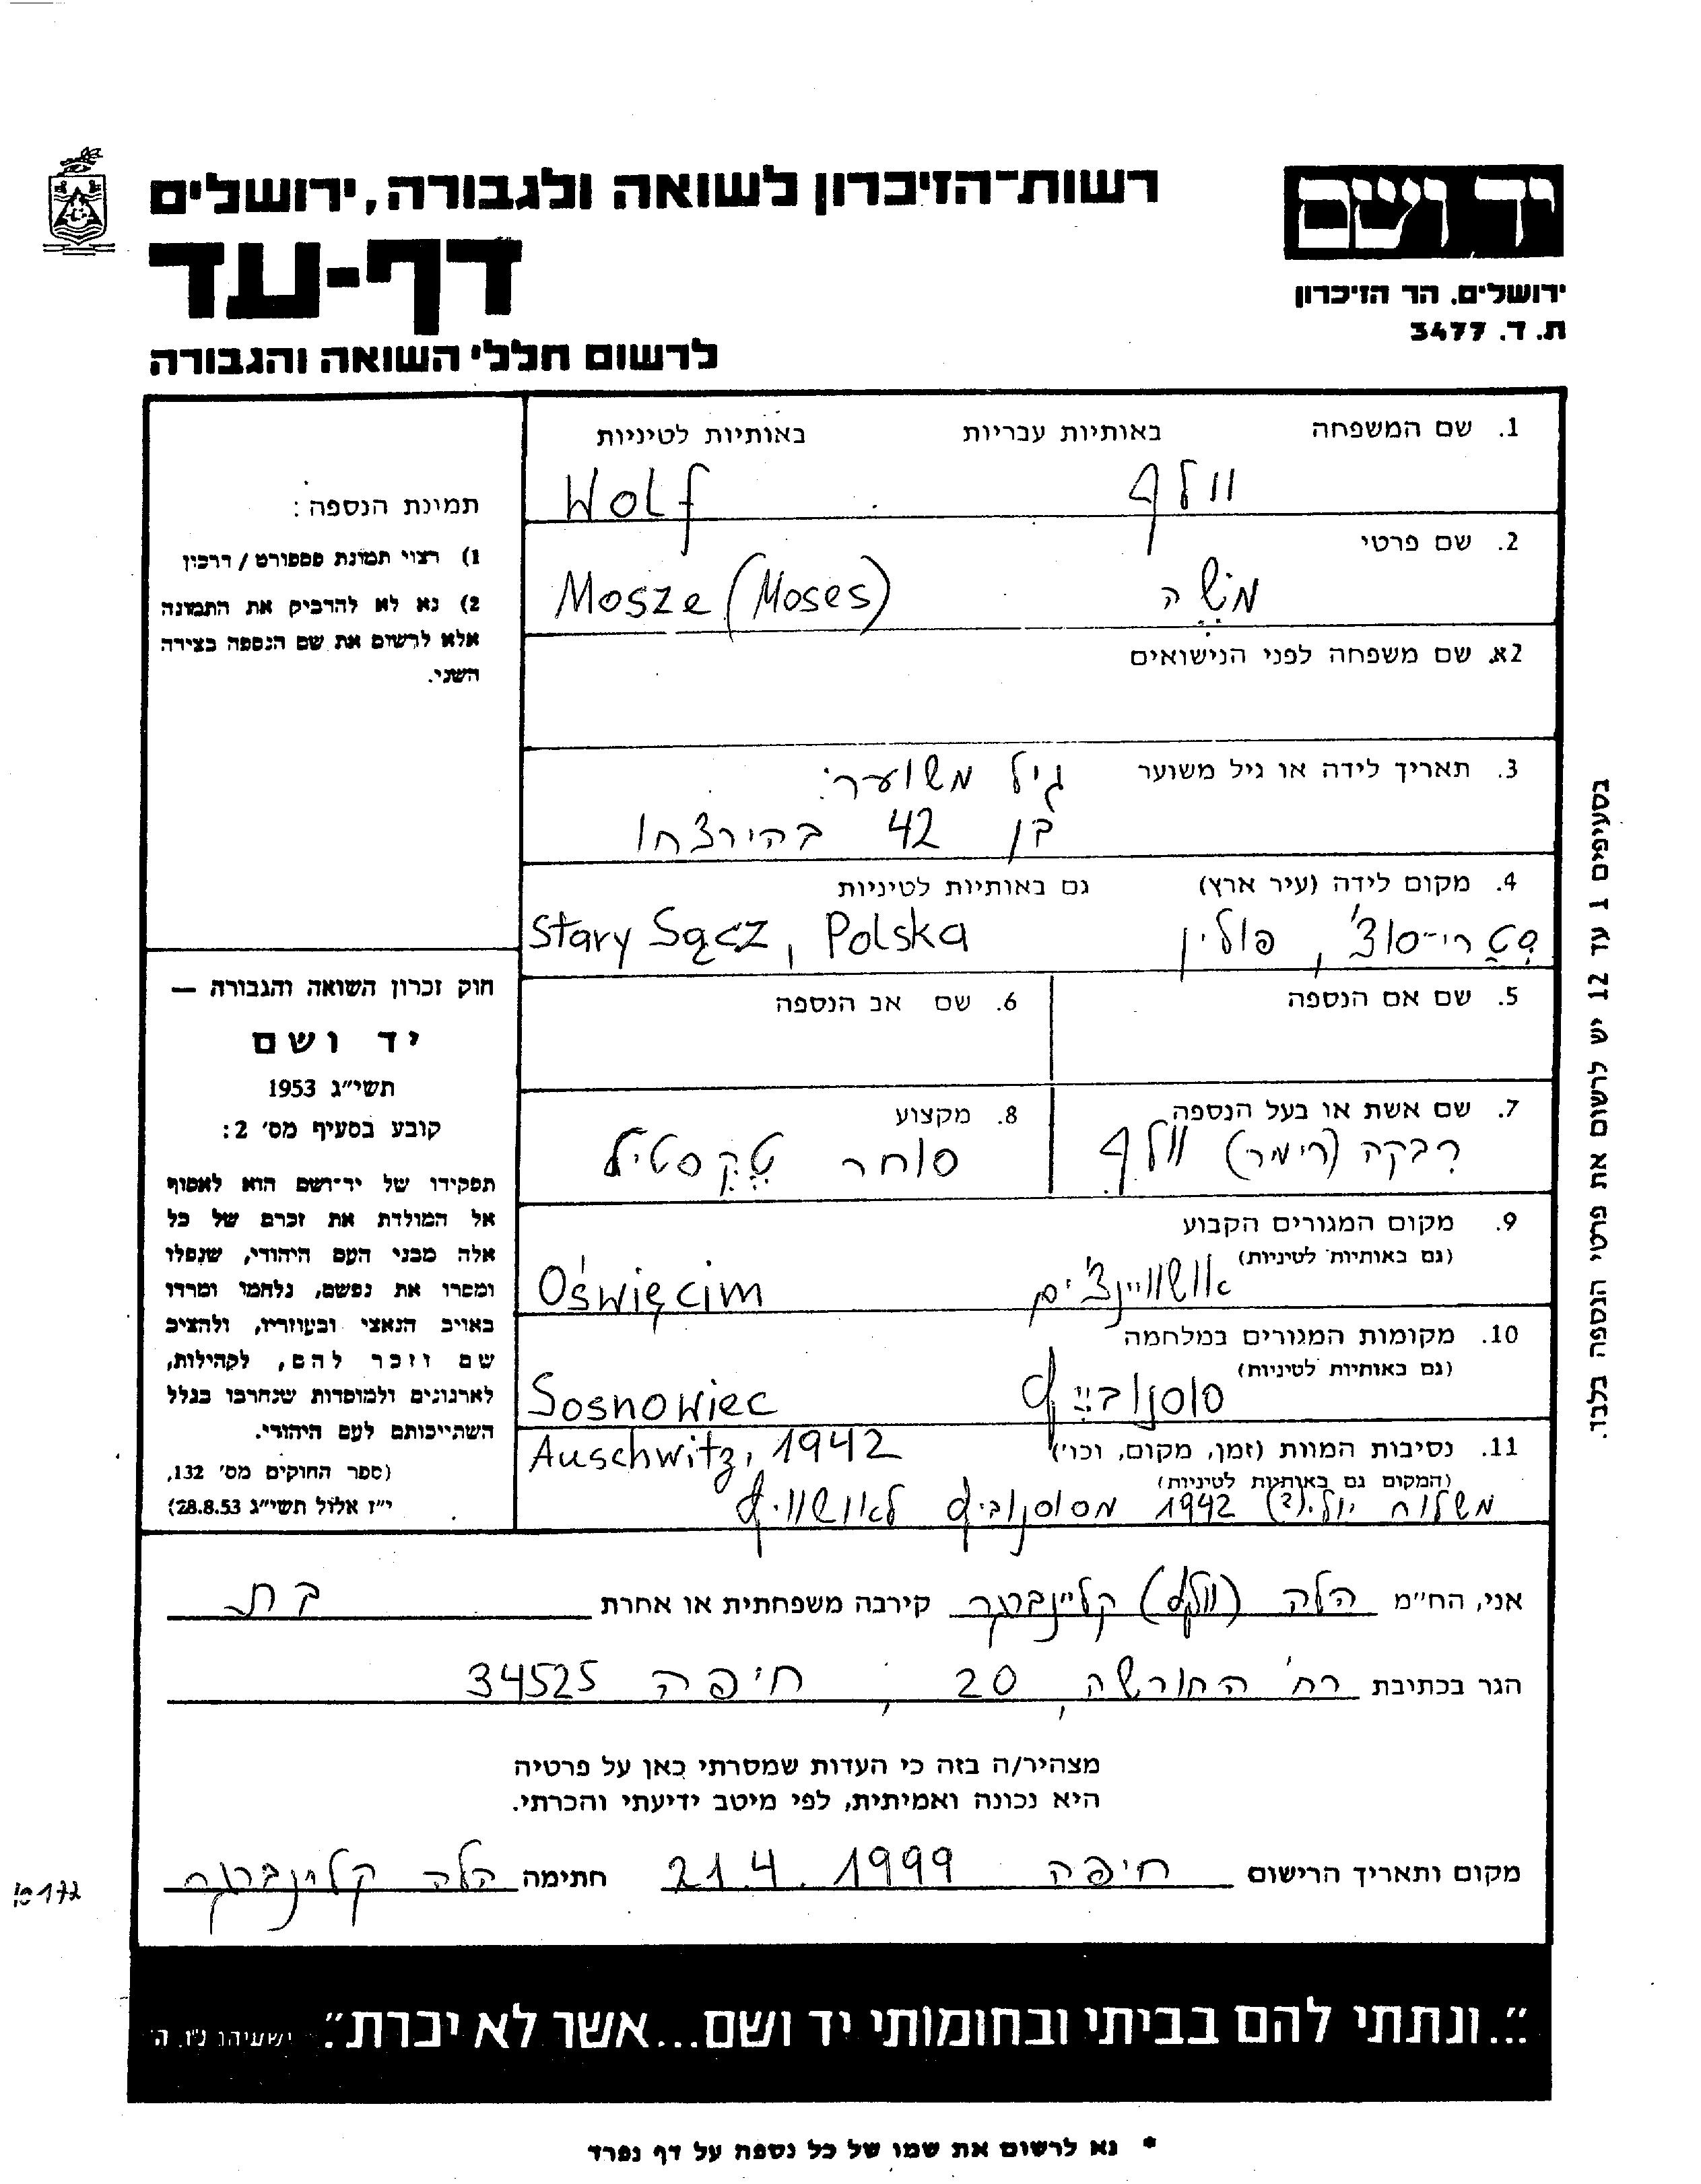 רשות־הזיכרון לשואה ולגבורה, ירושלים
דף-עד
לרשום חללי השואה והגבורה
יד ושם
ירושלים, הר הזיכרון
ת. ד. 3477
1. שם המשפחה באותיות עבריות באותיות לטיניות
וולף Wolf
2. שם פרטי
משה Mosze (Moses)
2א. שם משפחה לפני הנישואים
3. תאריך לידה או גיל משוער גיל משוער:
בן 42 בהירצחו
4. מקום לידה (עיר ארץ) גם באותיות לטיניות
סטרי-סונץ', פולין Stary Sącz, Polska
5. שם אם הנספה 6. שם אב הנספה
7. שם אשת או בעל הנספה 8. מקצוע
רבקה (רימר) וולף סוחר טקסטיל
9. מקום המגורים הקבוע
(גם באותיות לטיניות)
אושוויינצ'ים Oświęcim
10. מקומות המגורים במלחמה
(גם באותיות לטיניות)
סוסנובייץ Sosnowiec
11. נסיבות המוות (זמן, מקום, וכו') Auschwitz, 1942
(המקום גם באותיות לטיניות)
משלוח יולי(?) 1942 מסוסנוביץ לאושוויץ
תמונת הנספה:
1) רצוי תמונת פספורט / דרכון
2) נא לא להדביק את התמונה
אלא לרשום את שם הנספה בצידה
השני.
חוק זכרון השואה והגבורה —
יד ושם
תשי"ג 1953
קובע בסעיף מס' 2:
תפקידו של יד־ושם הוא לאסוף
אל המולדת את זכרם של כל
אלה מבני העם היהודי, שנפלו
ומסרו את נפשם, נלחמו ומרדו
באויב הנאצי ובעוזריו, ולהציב
שם וזכר להם, לקהילות,
לארגונים ולמוסדות שנחרבו בגלל
השתייכותם לעם היהודי.
(ספר החוקים מס' 132,
י"ז אלול תשי"ג 28.8.53)
בסעיפים 1 עד 12 יש לרשום את פרטי הנספה בלבד.
אני, הח"מ הלה (וולף) קליינברגר קירבה משפחתית או אחרת בת
הגר בכתובת רח' החורשה, 20, חיפה 34525
מצהיר/ה בזה כי העדות שמסרתי כאן על פרטיה
היא נכונה ואמיתית, לפי מיטב ידיעתי והכרתי.
מקום ותאריך הרישום חיפה 21.4.1999 חתימה הלה קליינברגר
"...ונתתי להם בביתי ובחומותי יד ושם...אשר לא יכרת". ישעיהו נ"ו, ה'
* נא לרשום את שמו של כל נספה על דף נפרד